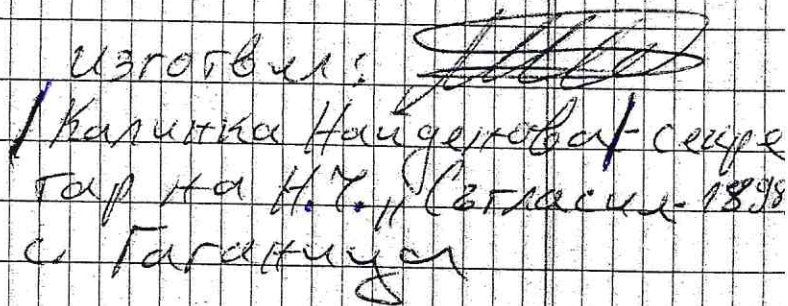 изготвил:
/Калинка Найденова/-секре
тар на Н.Ч. „Съгласие-1898
с. Гаганица